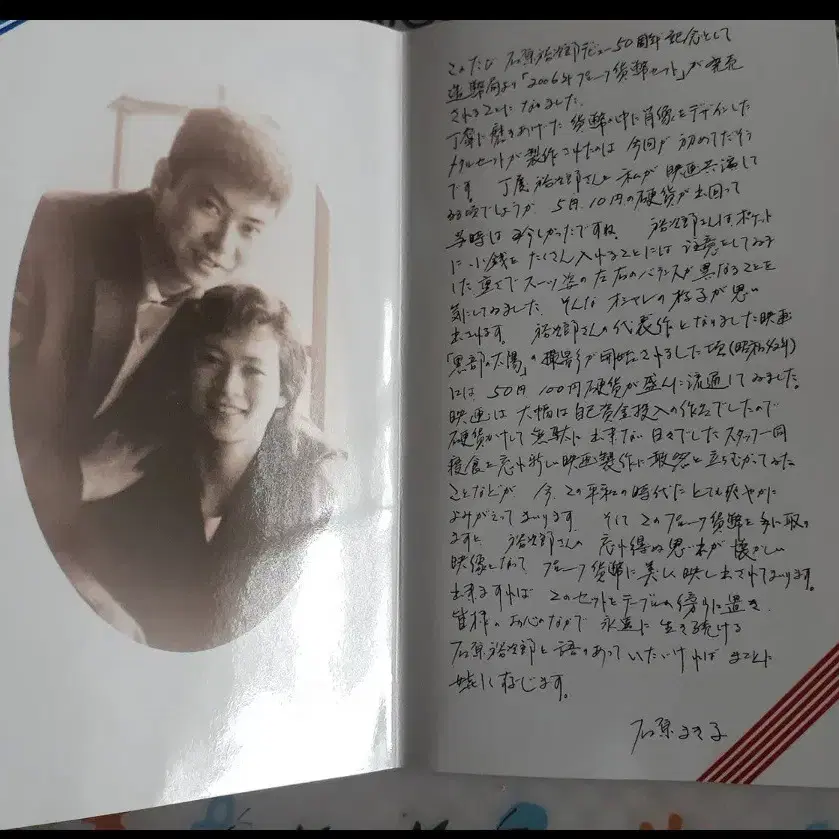 このたび 石原裕次郎デビュー50周年記念として
造幣局より「2006年プルーフ貨幣セット」が発売
されることになりました。
丁寧に磨きあげた貨幣の中に肖像をデザインした
メダルセットが製作されたのは 今回が初めてだそう
です。 丁度 裕次郎さんと私が映画共演して
いる頃でしょうか 5円、10円の硬貨が出回って
当時は珍しかったですね。 裕次郎さんはポケット
に小銭をたくさん入れることには 注意をしてゐま
した 重さでスーツ姿の左右のバランスが異なることを
気にしてゐました。そんなオシャレの様子が思い
出されます。 裕次郎さんの代表作となりました映画
「黒部の太陽」の撮影が開始されました頃(昭和42年)
には 50円 100円硬貨が盛んに流通してゐました。
映画は大幅な自己資金投入の作品でしたので
硬貨かて 無駄に出来ない日々でした スタッフ一同
寝食を忘れ新しい映画製作に敢然と立ちむかってゐた
ことなどが 今、この平和の時代に とても爽やかに
よみがえってまいります。 そして このプルーフ貨幣を手に取り
ますと 裕次郎さんの 忘れ得ぬ思い出が 懐かしい
映像となって プルーフ貨幣に美しく映し出されてまいります。
出来ますれば このセットをテーブルの傍らに置き
皆様のお心のなかで 永遠に生き続ける
石原裕次郎と語りあっていただければ まことに
嬉しく存じます。
石原まき子